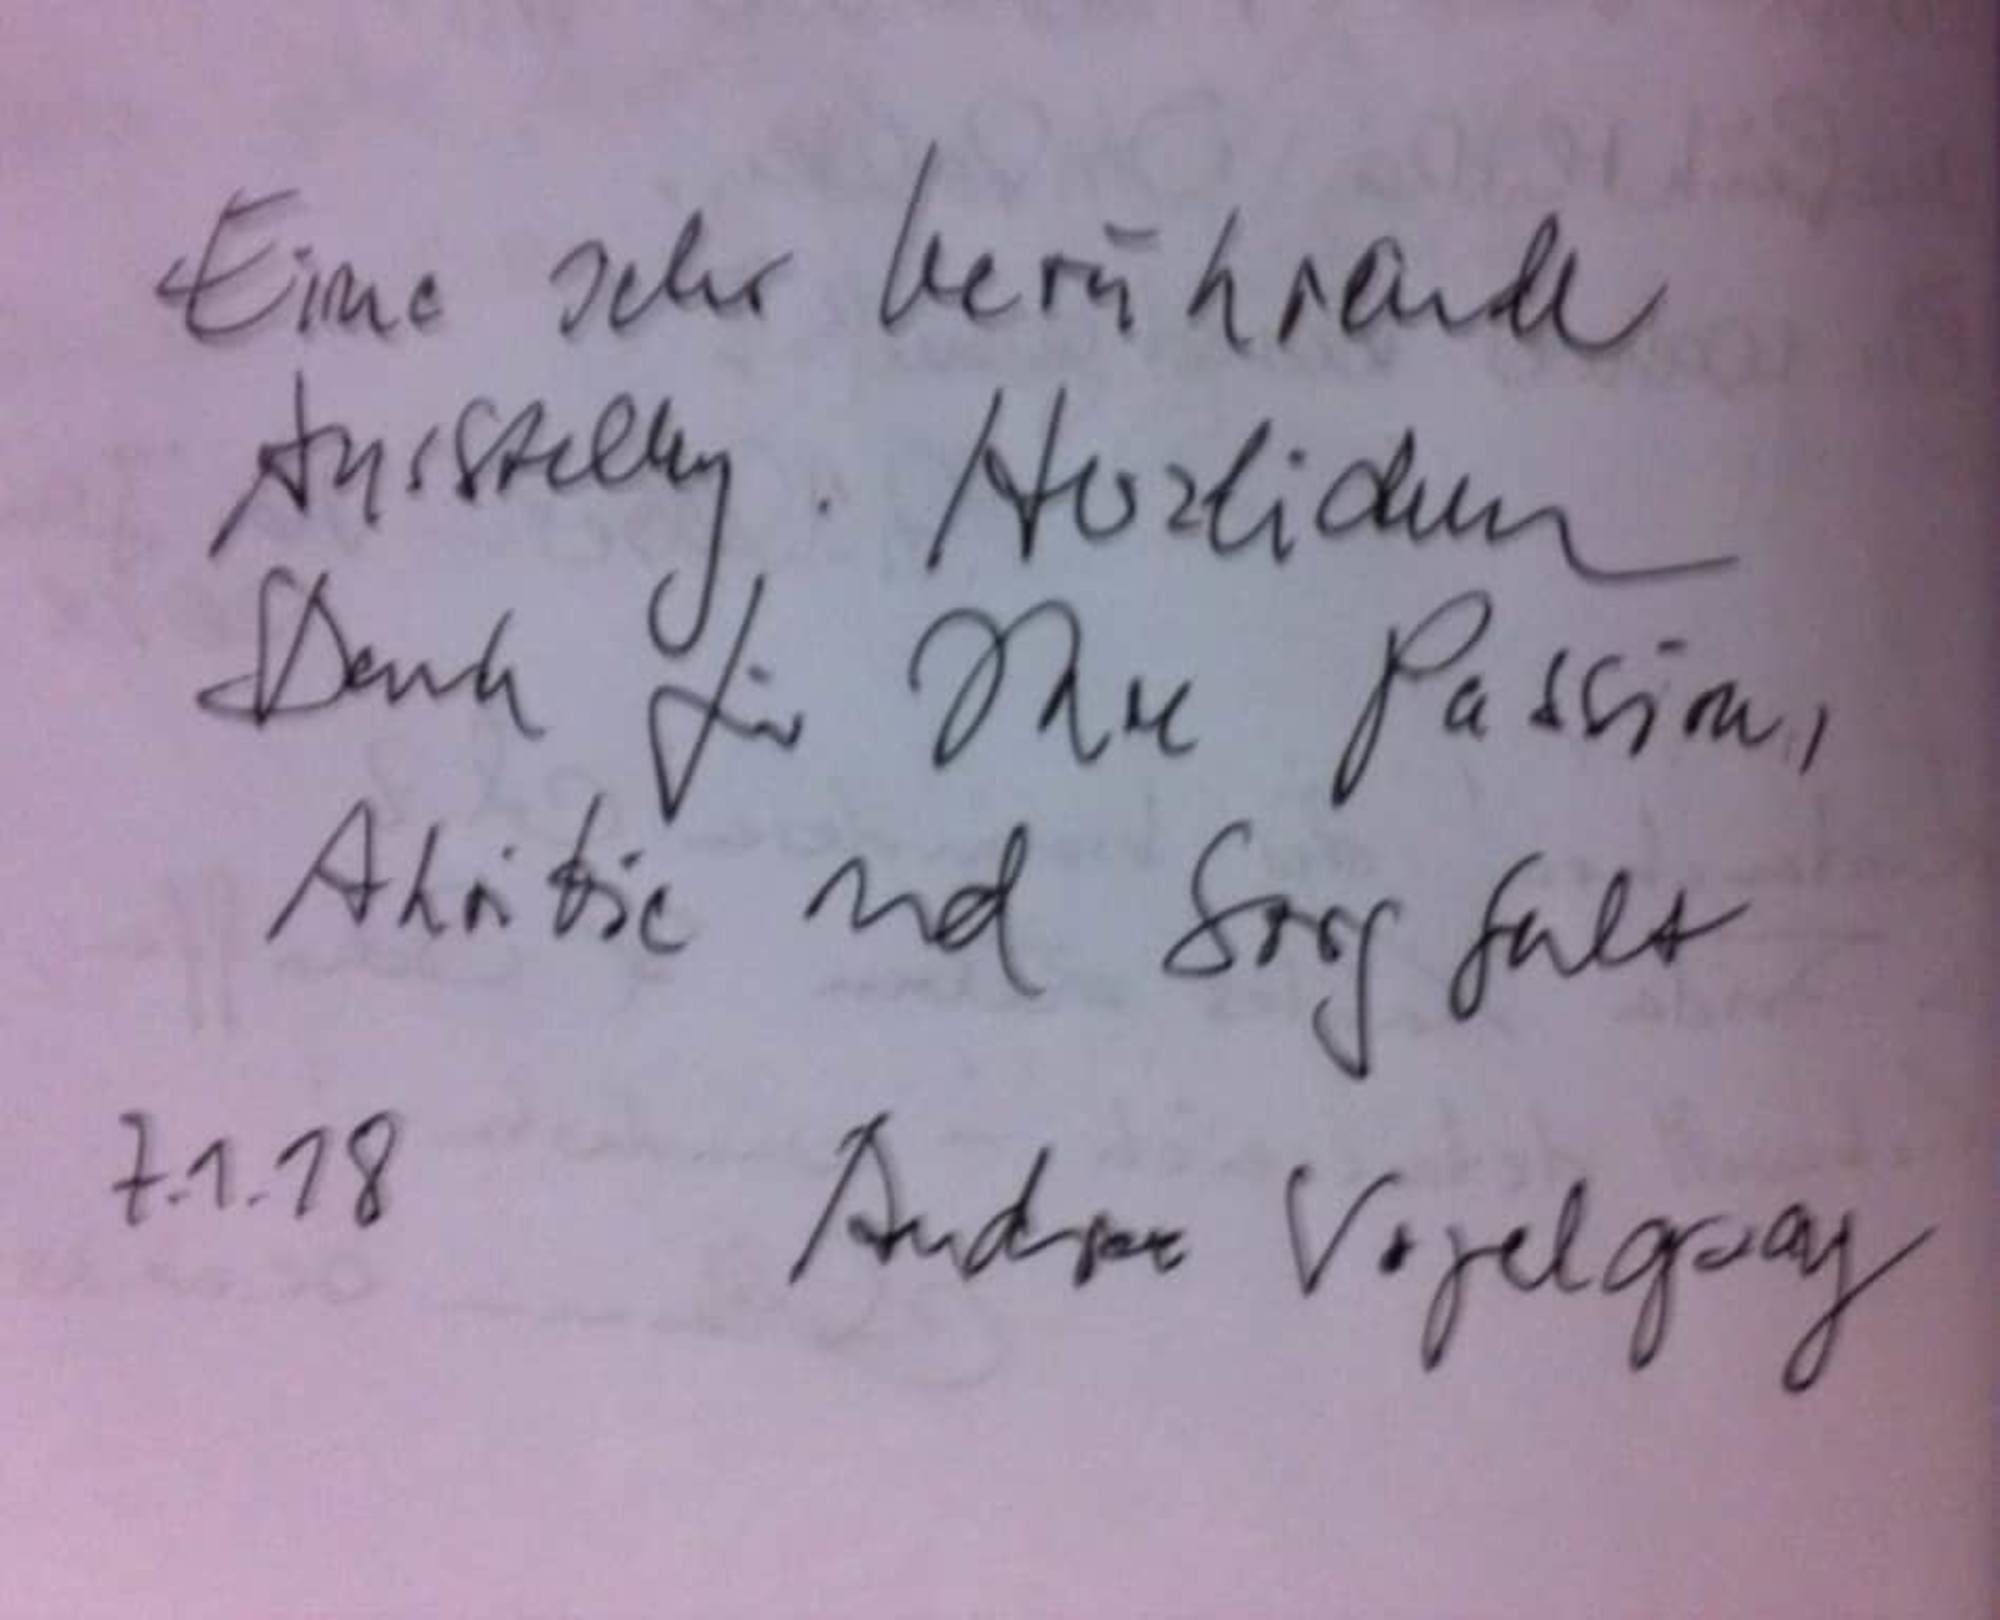 Eine sehr berührende
Ausstellung. Herzlichen
Dank für Ihre Passion,
Akribie und Sorgfalt
7.1.18 Andrea Vogelgsang